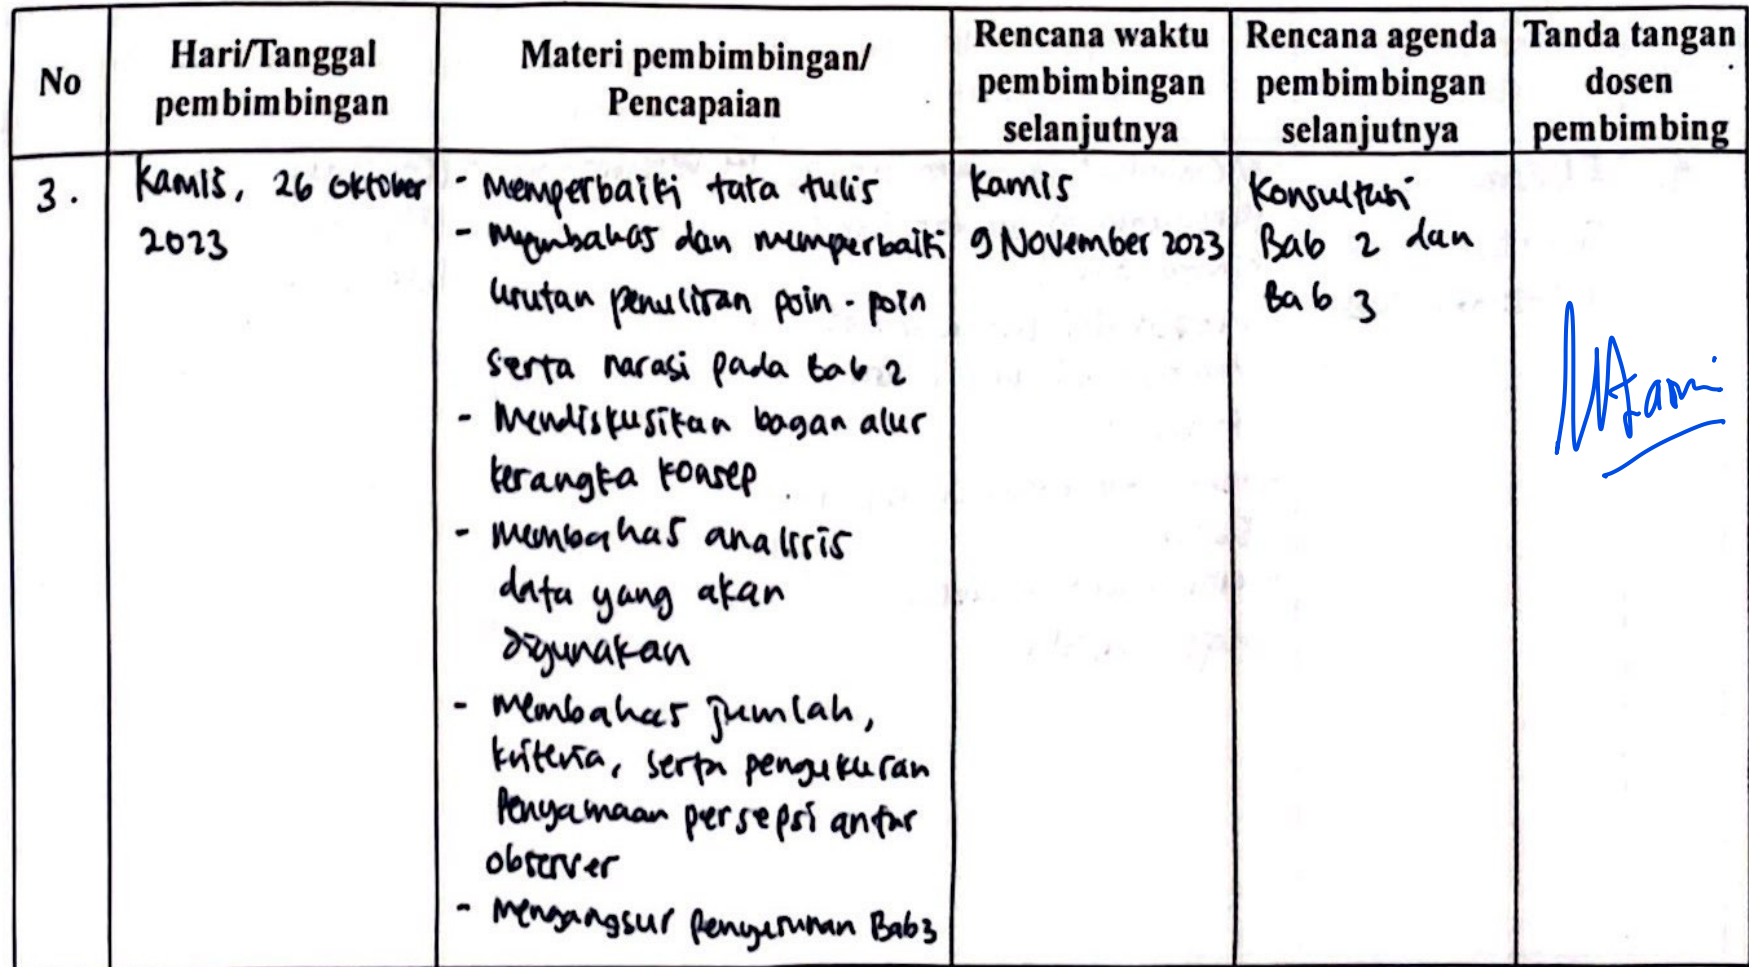 No
Hari/Tanggal
pembimbingan
Materi pembimbingan/
Pencapaian
Rencana waktu
pembimbingan
selanjutnya
Rencana agenda
pembimbingan
selanjutnya
Tanda tangan
dosen
pembimbing
3.
Kamis, 26 Oktober
2023
- Memperbaiki tata tulis
- Membahas dan memperbaiki
urutan penulisan poin-poin
serta narasi pada Bab 2
- Mendiskusikan bagan alur
kerangka konsep
- Membahas analisis
data yang akan
digunakan
- Membahas jumlah,
kriteria, serta pengukuran
Penyamaan persepsi antar
observer
- Mengangsur Penyusunan Bab 3
Kamis
9 November 2023
Konsultasi
Bab 2 dan
Bab 3